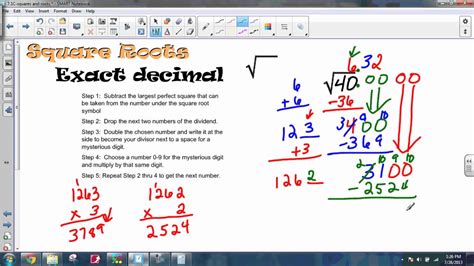 7.1C-squares and roots.* - SMART Notebook
Square Roots
Exact decimal
Step 1: Subtract the largest perfect square that can be taken from the number under the square root symbol
Step 2: Drop the next two numbers of the dividend.
Step 3: Double the chosen number and write it at the side to become your divisor next to a space for a mysterious digit.
Step 4: Choose a number 0-9 for the mysterious digit and multiply by that same digit.
Step 5: Repeat Step 2 thru 4 to get the next number.
√
6.32
6 √40.00 00
+6 -36
12 3 3400
+3 -369
126 2 3100
-2524
1263
x 3
3789
1262
x 2
2524
3:26 PM
7/28/2013